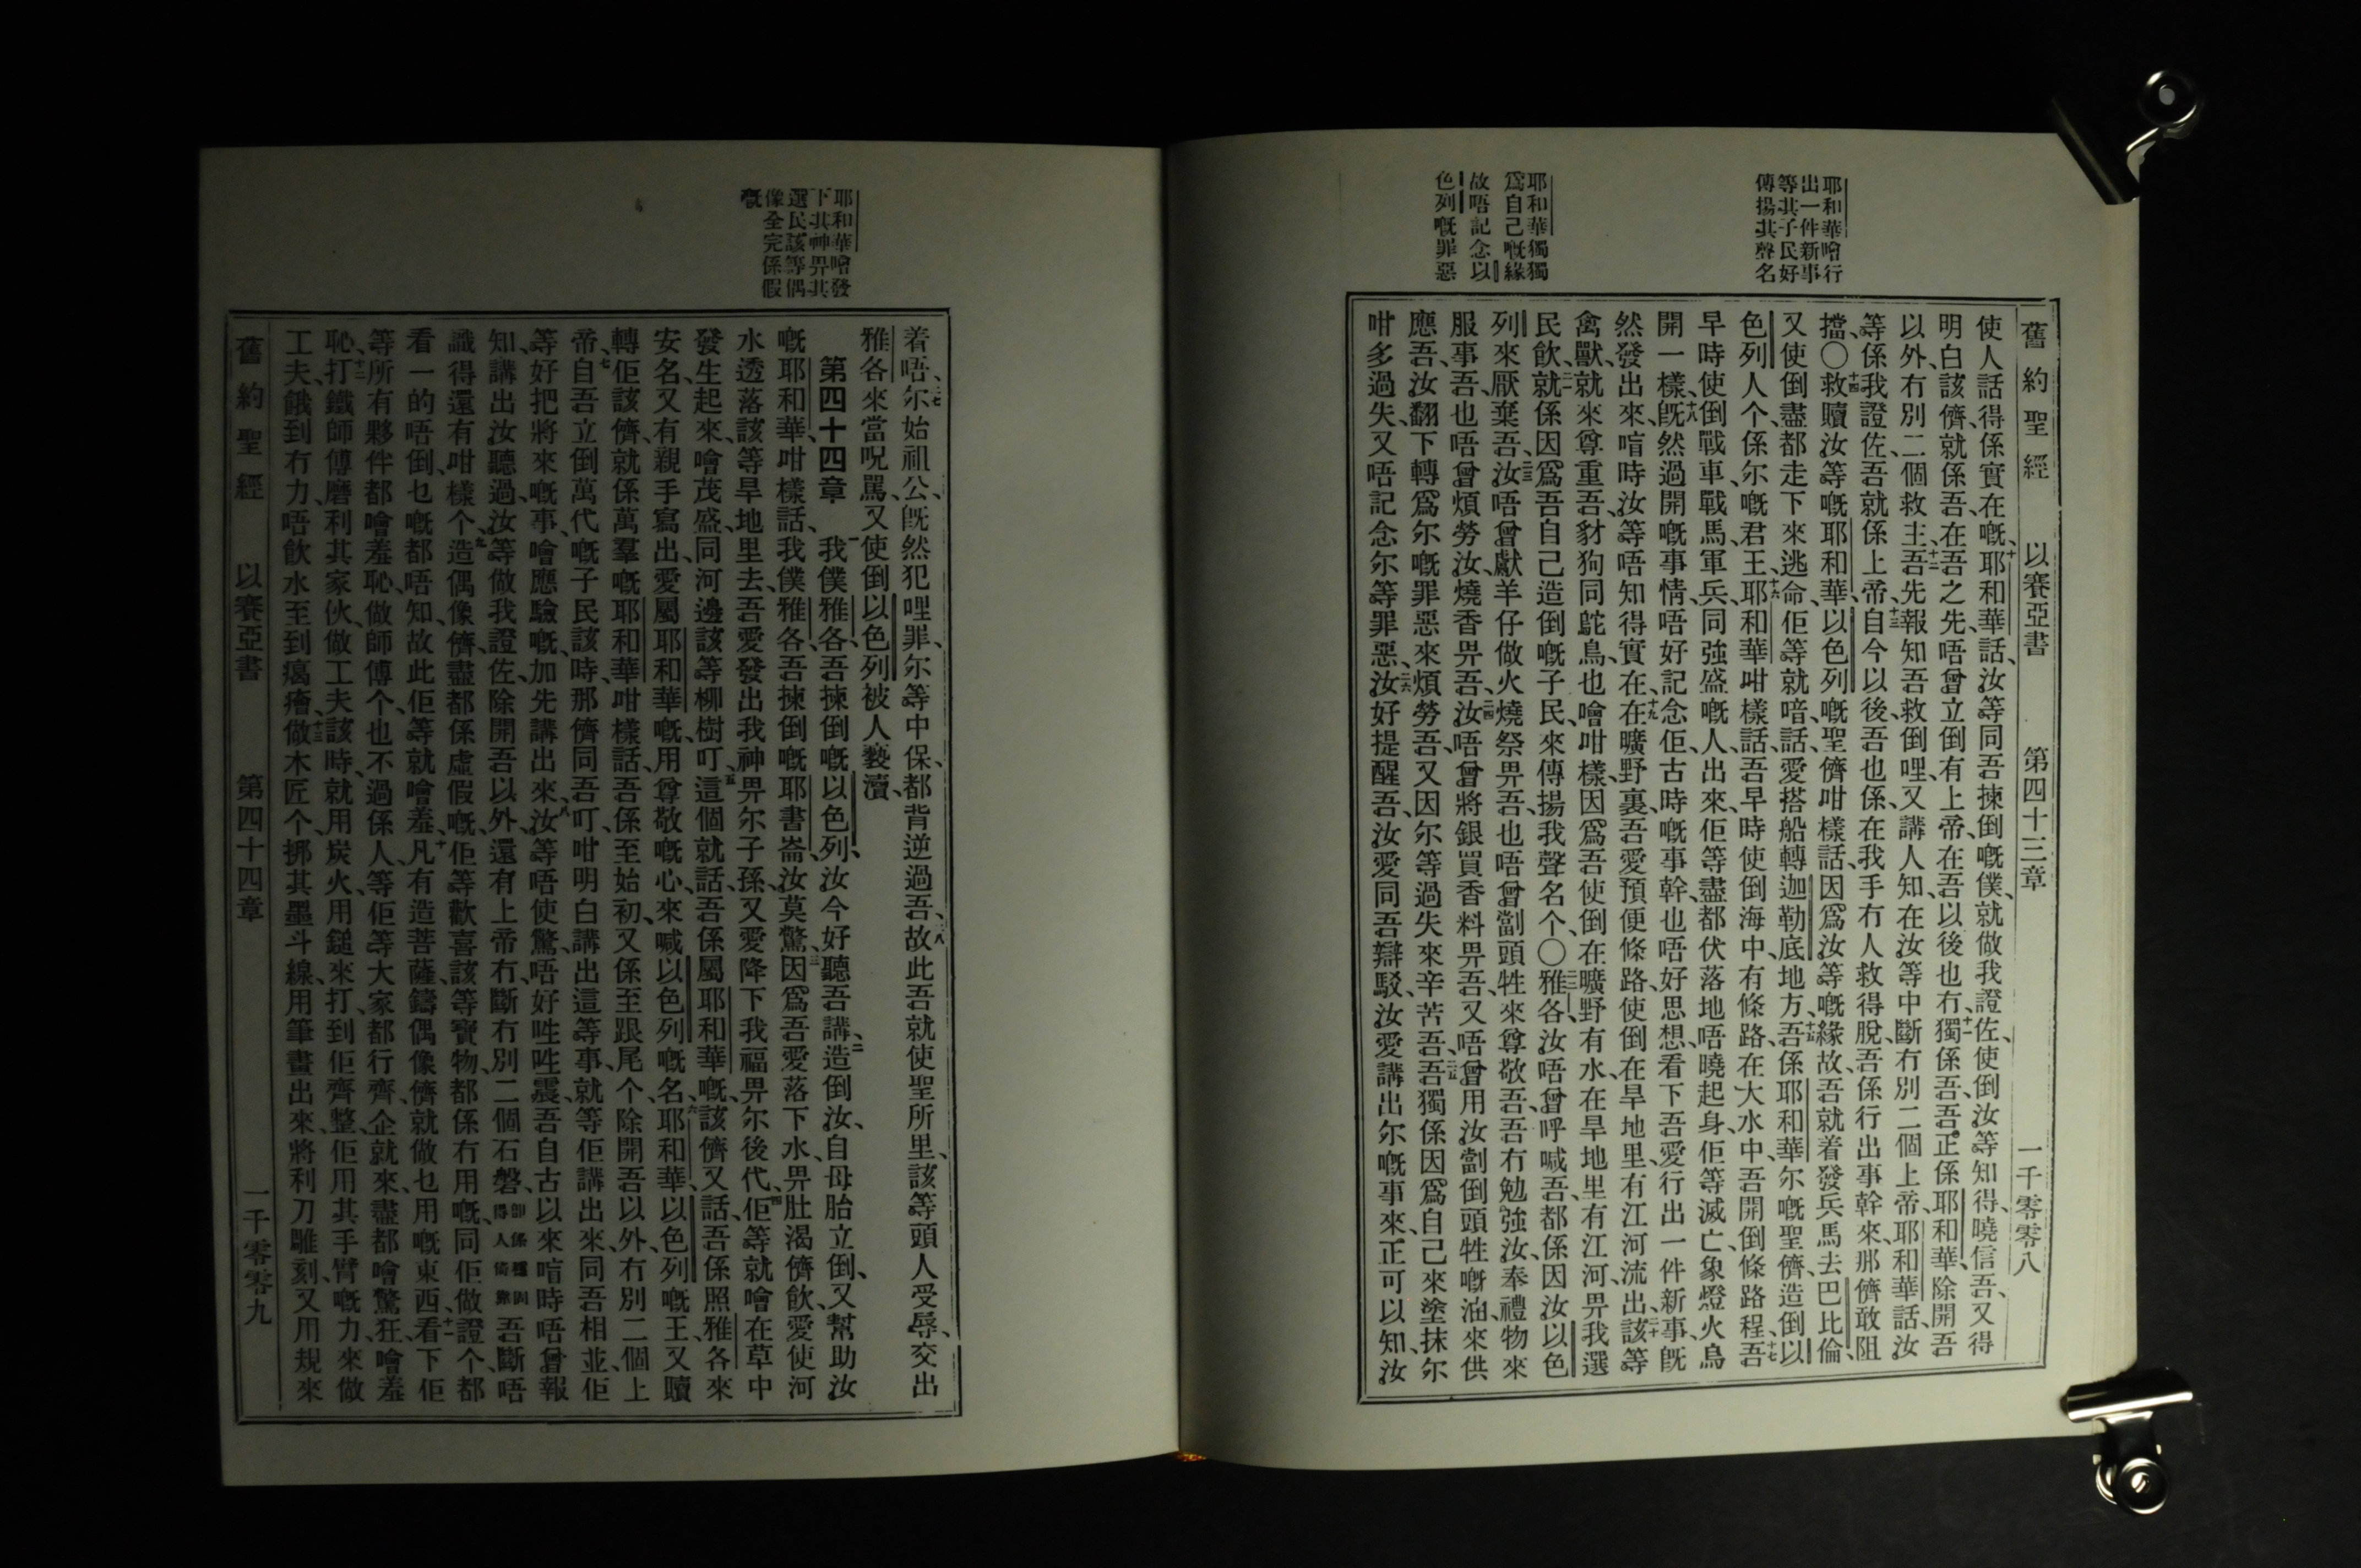 耶和華噲行
出一件新事
等其子民好
傳揚其聲名
耶和華獨獨
爲自己嘅緣
故唔記念以
色列嘅罪惡
舊約聖經 以賽亞書 第四十三章 一千零零八
使人話得係實在嘅、十耶和華話、汝等同吾揀倒嘅僕、就做我證佐、使倒汝等知得、曉信吾、又得
明白該儕、就係吾、在吾之先、唔曾立倒有上帝、在吾以後也冇、十一獨係吾、吾正係耶和華、除開吾
以外、冇別二個救主、十二吾先報知吾救倒哩、又講人知、在汝等中斷冇別二個上帝、耶和華話、汝
等係我證佐、吾就係上帝、十三自今以後、吾也係、在我手冇人救得脫、吾係行出事幹來、那儕敢阻
擋〇十四救贖汝等嘅耶和華、以色列嘅聖儕咁樣話、因爲汝等嘅緣故、吾就着發兵馬去巴比倫、
又使倒盡都走下來逃命、佢等就喑話、愛搭船轉迦勒底地方、十五吾係耶和華、尔嘅聖儕、造倒以
色列人个、係尔嘅君王、十六耶和華咁樣話、吾早時使倒海中有條路、在大水中、吾開倒條路程、十七吾
早時使倒戰車、戰馬、軍兵、同強盛嘅人、出來、佢等盡都伏落地、唔曉起身、佢等滅亡、象燈火烏
開一樣、十八旣然過開嘅事情、唔好記念佢、古時嘅事幹、也唔好思想、看下吾愛行出一件新事、旣
然發出來、喑時汝等唔知得實在、十九在曠野裏、吾愛預便條路、使倒在旱地里、有江河流出、二十該等
禽獸、就來尊重吾、豺狗同鴕鳥、也噲咁樣、因爲吾使倒在曠野有水、在旱地里有江河、畀我選
民飲、二一就係因爲吾自己造倒嘅子民、來傳揚我聲名个、〇二二雅各、汝唔曾呼喊吾、都係因汝以色
列來厭棄吾、二三汝唔曾獻羊仔做火燒祭畀吾、也唔曾劏頭牲來尊敬吾、吾冇勉強汝、奉禮物來
服事吾、也唔曾煩勞汝、燒香畀吾、二四汝唔曾將銀買香料畀吾、又唔曾用汝劏倒頭牲嘅油、來供
應吾、汝翻下轉爲尔嘅罪惡來煩勞吾、又因尔等過失來辛苦吾、二五吾獨係因爲自己來塗抹尔
咁多過失、又唔記念尔等罪惡、二六汝好提醒吾、汝愛同吾辯駁、汝愛講出尔嘅事來、正可以知、汝
耶和華噲發
下其神畀其
選民該等偶
像全完係假
嘅
着唔、二七尔始祖公、旣然犯哩罪、尔等中保、都背逆過吾、二八故此吾就使聖所里、該等頭人受辱、交出
雅各來當呪駡、又使倒以色列被人褻瀆、
第四十四章 一我僕雅各、吾揀倒嘅以色列、汝今好聽吾講、二造倒汝、自母胎立倒、又幫助汝
嘅耶和華、咁樣話、我僕雅各、吾揀倒嘅耶書崙、汝莫驚、三因爲吾愛落下水、畀肚渴儕飲、愛使河
水透落該等旱地里去、吾愛發出我神畀尔子孫、又愛降下我福畀尔後代、四佢等就噲在草中
發生起來、噲茂盛、同河邊該等柳樹叮、五這個就話、吾係屬耶和華嘅、該儕又話、吾係照雅各來
安名、又有親手寫出愛屬耶和華嘅、用尊敬嘅心、來喊以色列嘅名、六耶和華、以色列嘅王、又贖
轉佢該儕、就係萬羣嘅耶和華咁樣話、吾係至始初、又係至跟尾个、除開吾以外、冇別二個上
帝、七自吾立倒萬代嘅子民該時、那儕同吾叮、咁明白講出這等事、就等佢講出來、同吾相並、佢
等好把將來嘅事、噲應驗嘅、加先講出來、八汝等唔使驚、唔好㘴㘴震、吾自古以來喑時唔曾報
知、講出汝聽過、汝等做我證佐、除開吾以外、還有上帝冇、斷冇別二個石磐、卽係穩固得人倚靠 吾斷唔
識得還有咁樣个、九造偶像儕、盡都係虛假嘅、佢等歡喜該等寶物、都係冇用嘅、同佢做證个、都
看一的唔倒、乜嘅都唔知、故此佢等就噲羞、十凡有造菩薩、鑄偶像儕、就做乜用嘅東西、十一看下佢
等所有夥伴都噲羞恥、做師傅个、也不過係人、等佢等大家都行齊、企就來、盡都噲驚狂、噲羞
恥、十二打鐵師傅磨利其家伙、做工夫該時、就用炭火、用鎚來打、到佢齊整、佢用其手臂嘅力來做
工夫、餓到冇力、唔飲水至到癘㿔、十三做木匠个、挷其墨斗線、用筆畫出來、將利刀雕刻、又用規來
舊約聖經 以賽亞書 第四十四章 一千零零九